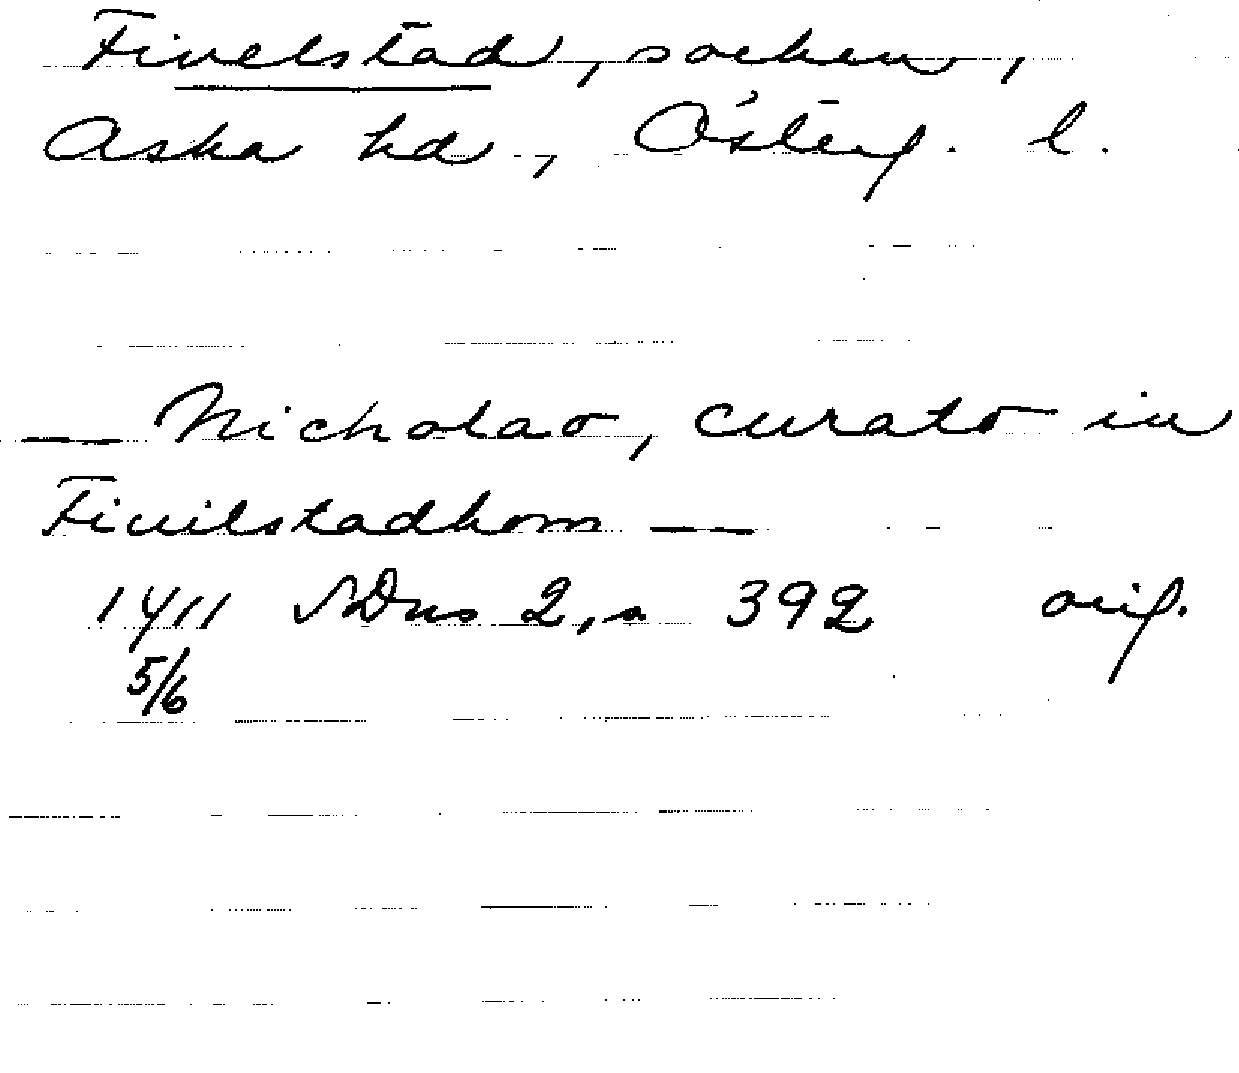 Fivelstad, socken,
Aska hd, Österg. l.
— Nicholao, curato in
Fiuilstadhom —
1411 SDns 2, s 392 orig.
5/6